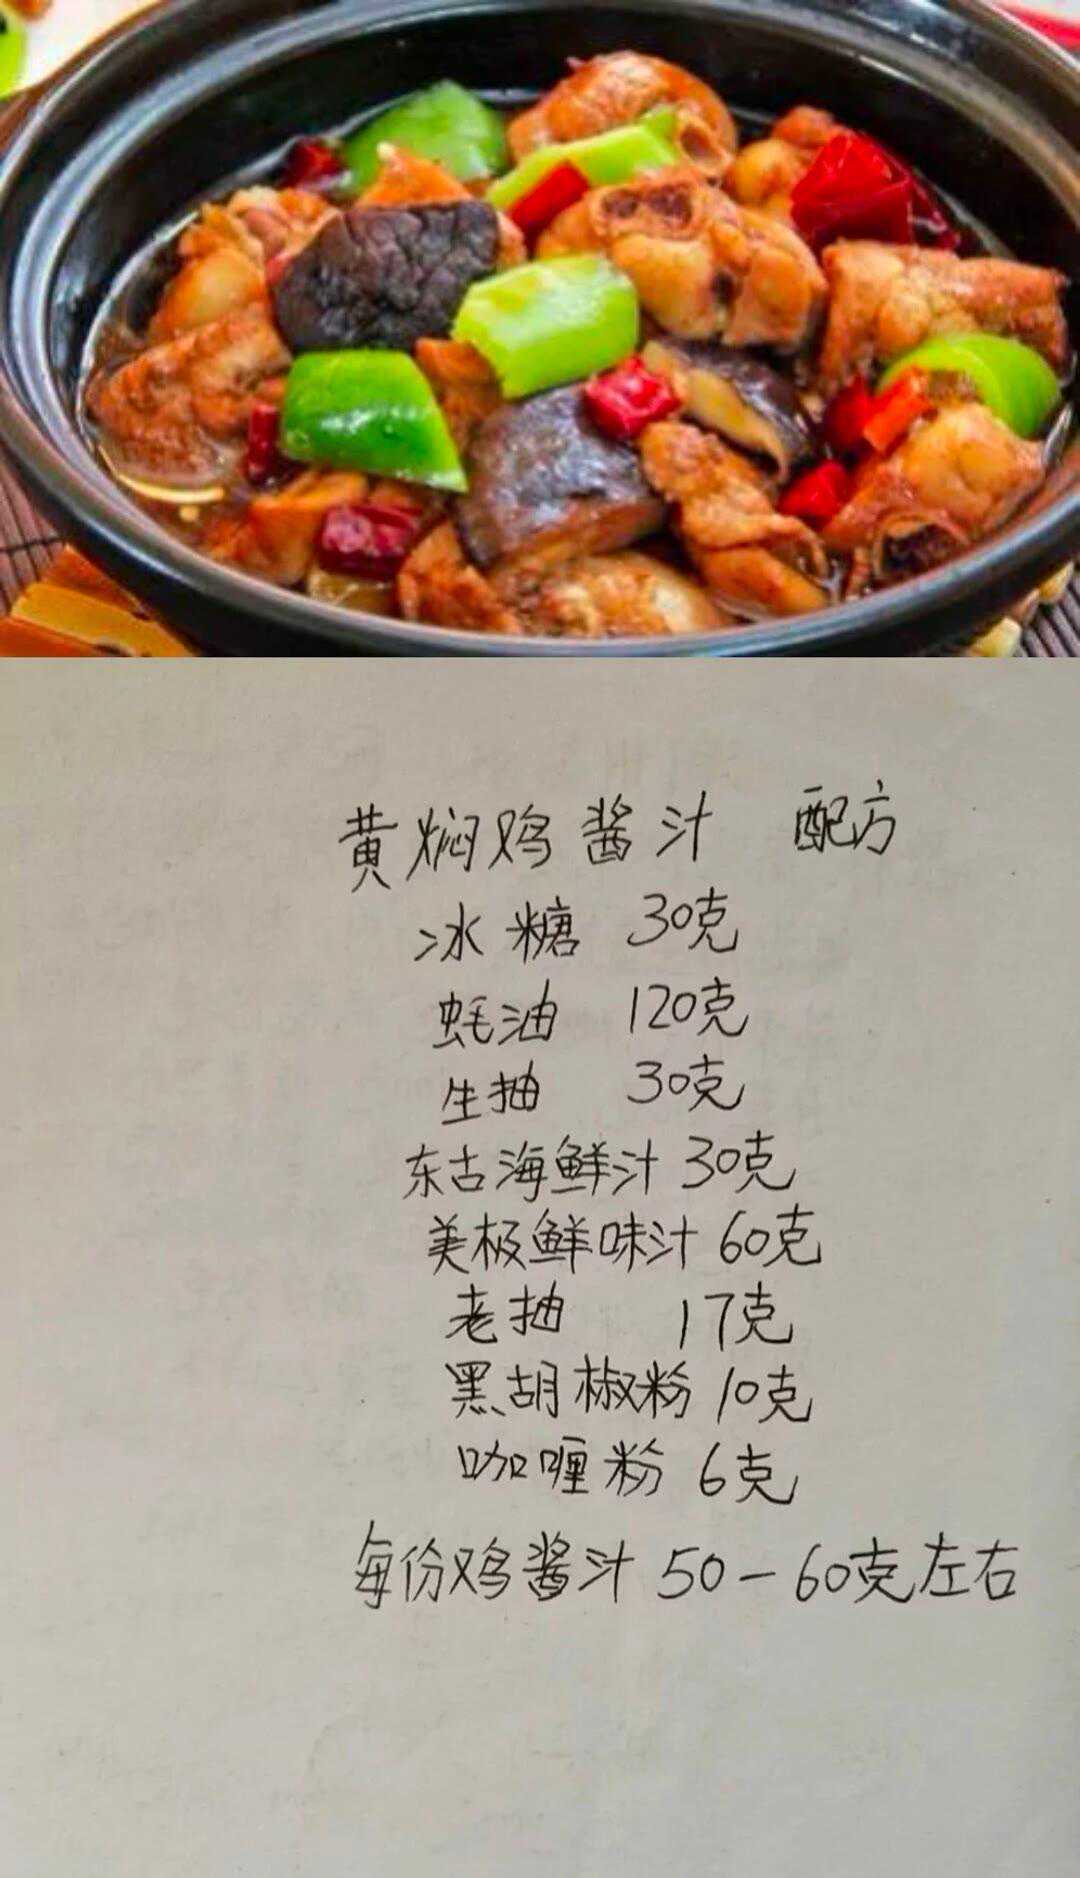 黄焖鸡酱汁 配方
冰糖 30克
蚝油 120克
生抽 30克
东古海鲜汁 30克
美极鲜味汁 60克
老抽 17克
黑胡椒粉 10克
咖喱粉 6克
每份鸡酱汁 50-60克左右